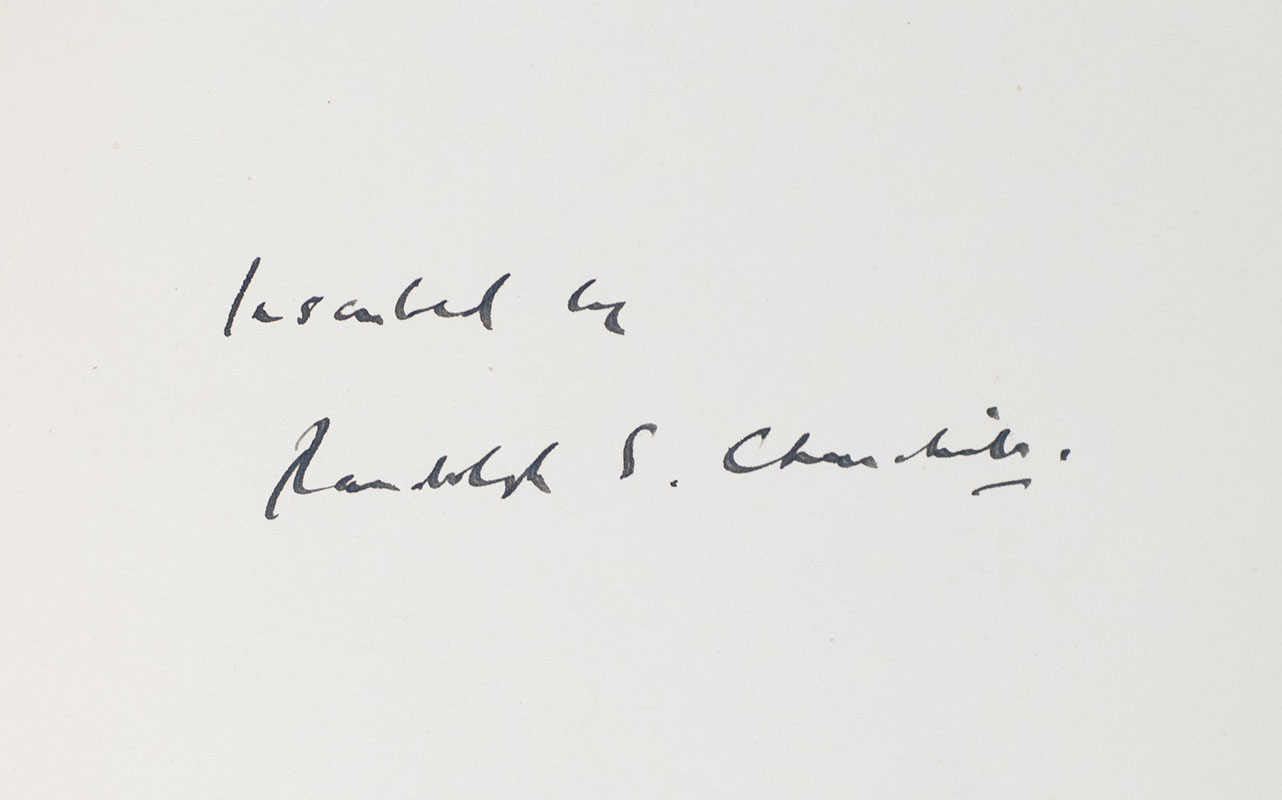 Inscribed by
Randolph S. Churchill.